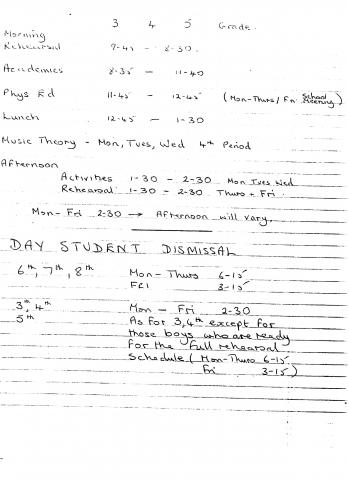 3 4 5 Grade
Morning
Rehearsal 7-45 - 8-30.
Academics 8-35 - 11-40
Phys Ed 11-45 - 12-45 (Mon-Thurs/Fri School Meeting)
Lunch 12-45 - 1-30
Music Theory - Mon, Tues, Wed 4th Period
Afternoon
Activities 1-30 - 2-30 Mon Tues Wed
Rehearsal 1-30 - 2-30 Thurs + Fri.
Mon-Fri 2-30 → Afternoon will vary.
DAY STUDENT DISMISSAL
6th, 7th, 8th Mon-Thurs 6-15
Fri 3-15
3rd, 4th Mon - Fri 2-30
5th As for 3,4th except for
those boys who are ready
for the full rehearsal
Schedule (Mon-Thurs 6-15
Fri 3-15)